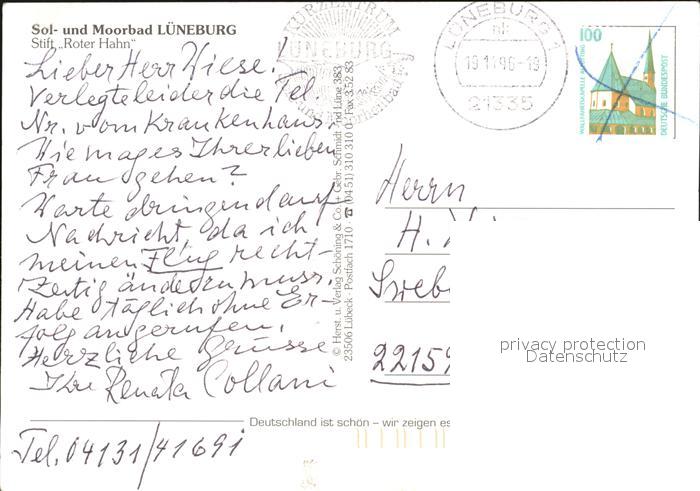 Sol- und Moorbad LÜNEBURG
Stift „Roter Hahn"
Lieber Herr Wiese!
Verlegte leider die Tel.
Nr. vom Krankenhaus.
Wie mag es Ihrer lieben
Frau gehen?
Warte dringend auf
Nachricht, da ich
meinen Flug recht-
zeitig ändern muss.
Habe täglich ohne Er-
folg angerufen.
Herzliche Grüsse
Ihre Renata Collani
Tel. 04131/41691
Deutschland ist schön – wir zeigen es
© Herst. u. Verlag Schöning & Co. + Gebr. Schmidt
23506 Lübeck · Postfach 1710 · ☎ (04 51) 310 310
KURZENTRUM
LÜNEBURG
LÜNEBURG 1
19.11.96-19
21335
100
WALLFAHRTSKAPELLE ALTÖTTING
DEUTSCHE BUNDESPOST
Herrn
H.
2215
privacy protection
Datenschutz